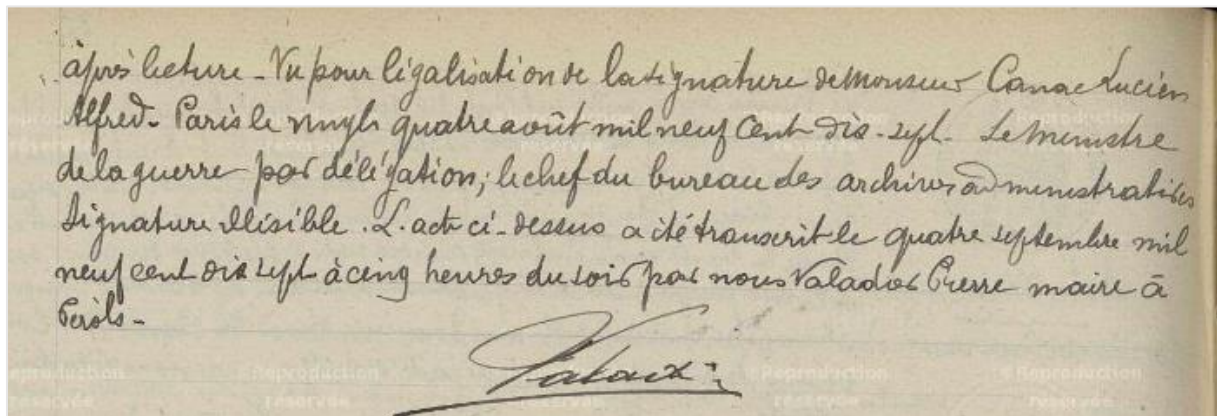 après lecture - Vu pour légalisation de la signature de Monsieur Canac Lucien
Alfred - Paris le vingt quatre août mil neuf cent dix-sept - Le Ministre
de la guerre par délégation, le chef du bureau des archives administratives
Signature illisible. L'acte ci-dessus a été transcrit le quatre septembre mil
neuf cent dix sept à cinq heures du soir par nous Valadier Pierre maire à
Pérols -
© Reproduction
réservée
© Reproduction
réservée